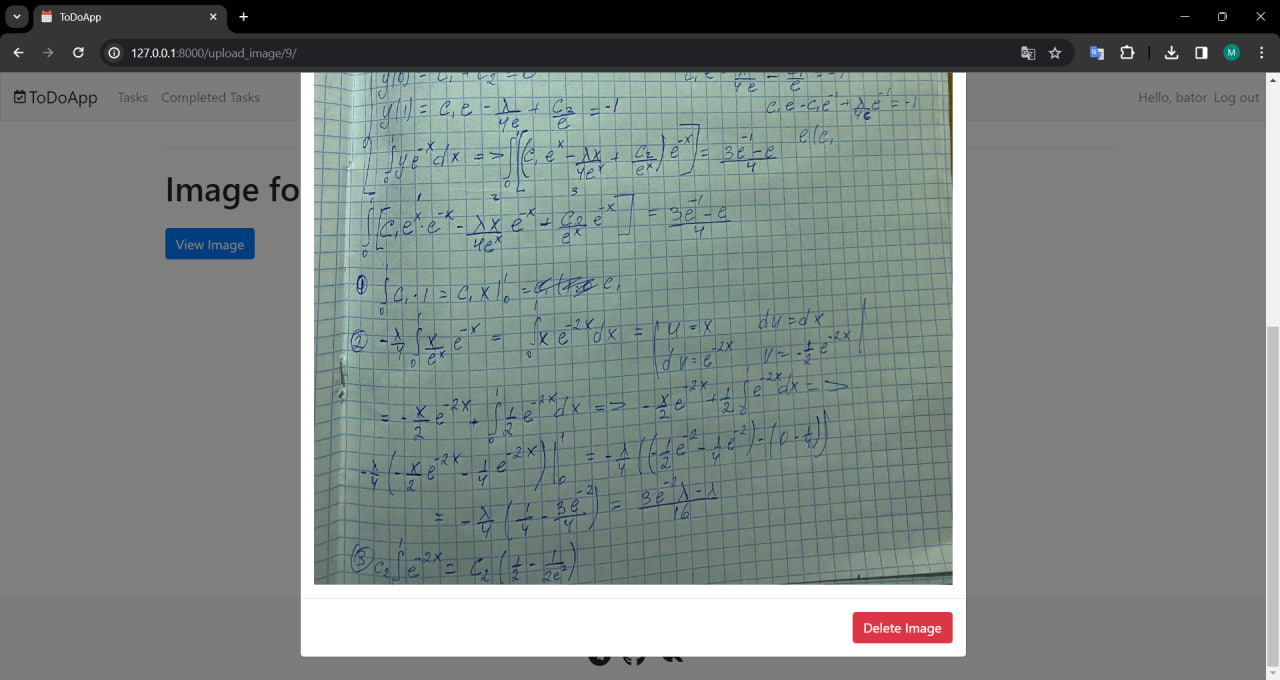 ToDoApp
127.0.0.1:8000/upload_image/9/
M
ToDoApp Tasks Completed Tasks Hello, bator Log out
Image fo
View Image
y(0) = C₁ + C₂ = 0
y(1) = C₁e - λ/4e + C₂/e = -1
C₁e - C₁e⁻¹ + λ/4 e⁻¹ = -1
∫₀¹ ye⁻ˣdx => ∫₀¹[(C₁eˣ - λx/4eˣ + C₂/eˣ)e⁻ˣ] = (3e⁻¹ - e)/4
e(C₁
1 2 3
∫₀¹[C₁eˣ·e⁻ˣ - λx/4eˣ e⁻ˣ + C₂/eˣ e⁻ˣ] = (3e⁻¹ - e)/4
① ∫₀¹ C₁·1 = C₁x|₀¹ = C₁
② -λ/4 ∫₀¹ x/eˣ e⁻ˣ = ∫₀¹ x e⁻²ˣdx = | u = x du = dx
dv = e⁻²ˣ v = -1/2 e⁻²ˣ |
= -x/2 e⁻²ˣ + ∫₀¹ 1/2 e⁻²ˣdx => -x/2 e⁻²ˣ + 1/2 ∫₀¹ e⁻²ˣdx =>
-λ/4 (-x/2 e⁻²ˣ - 1/4 e⁻²ˣ)|₀¹ = -λ/4 ((-1/2 e⁻² - 1/4 e⁻²) - (0 - 1/4))
= -λ/4 (1/4 - 3e⁻²/4) = (3e⁻²λ - λ)/16
③ C₂∫₀¹ e⁻²ˣ = C₂ (1/2 - 1/2e²)
Delete Image